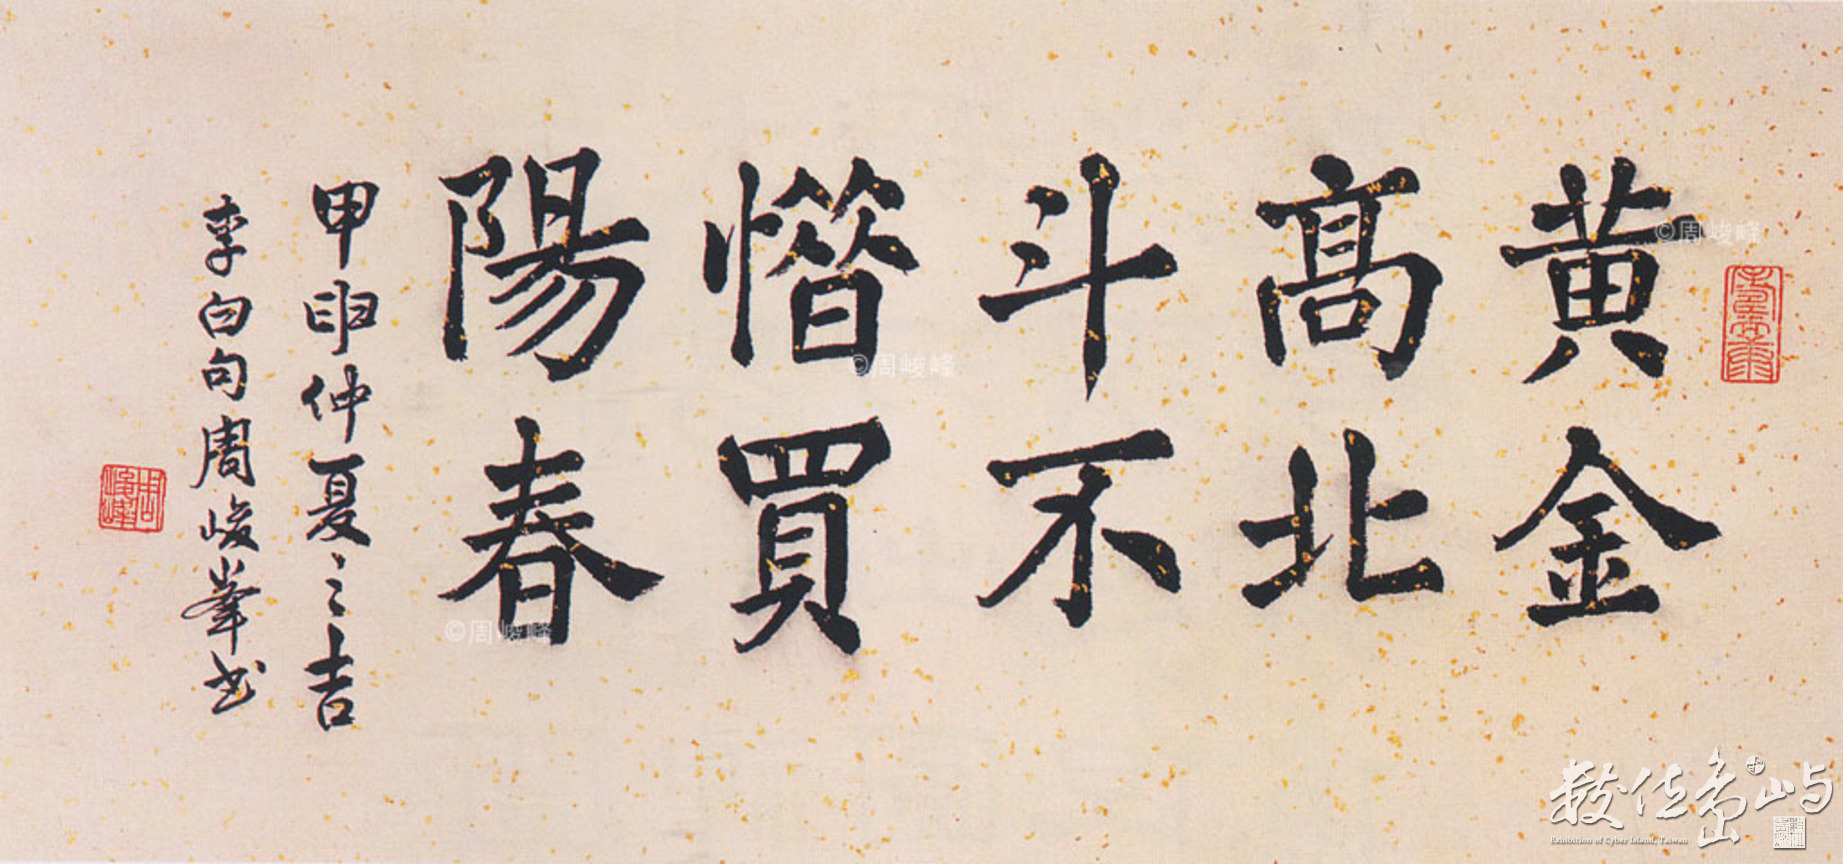 黃金
髙北
斗不
惜買
陽春
甲申仲夏之吉
李白句周峻峯书
周峻峰
©周峻峰
©周峻峰
©周峻峰
數位島嶼
Exhibition of Cyber Island, Taiwan